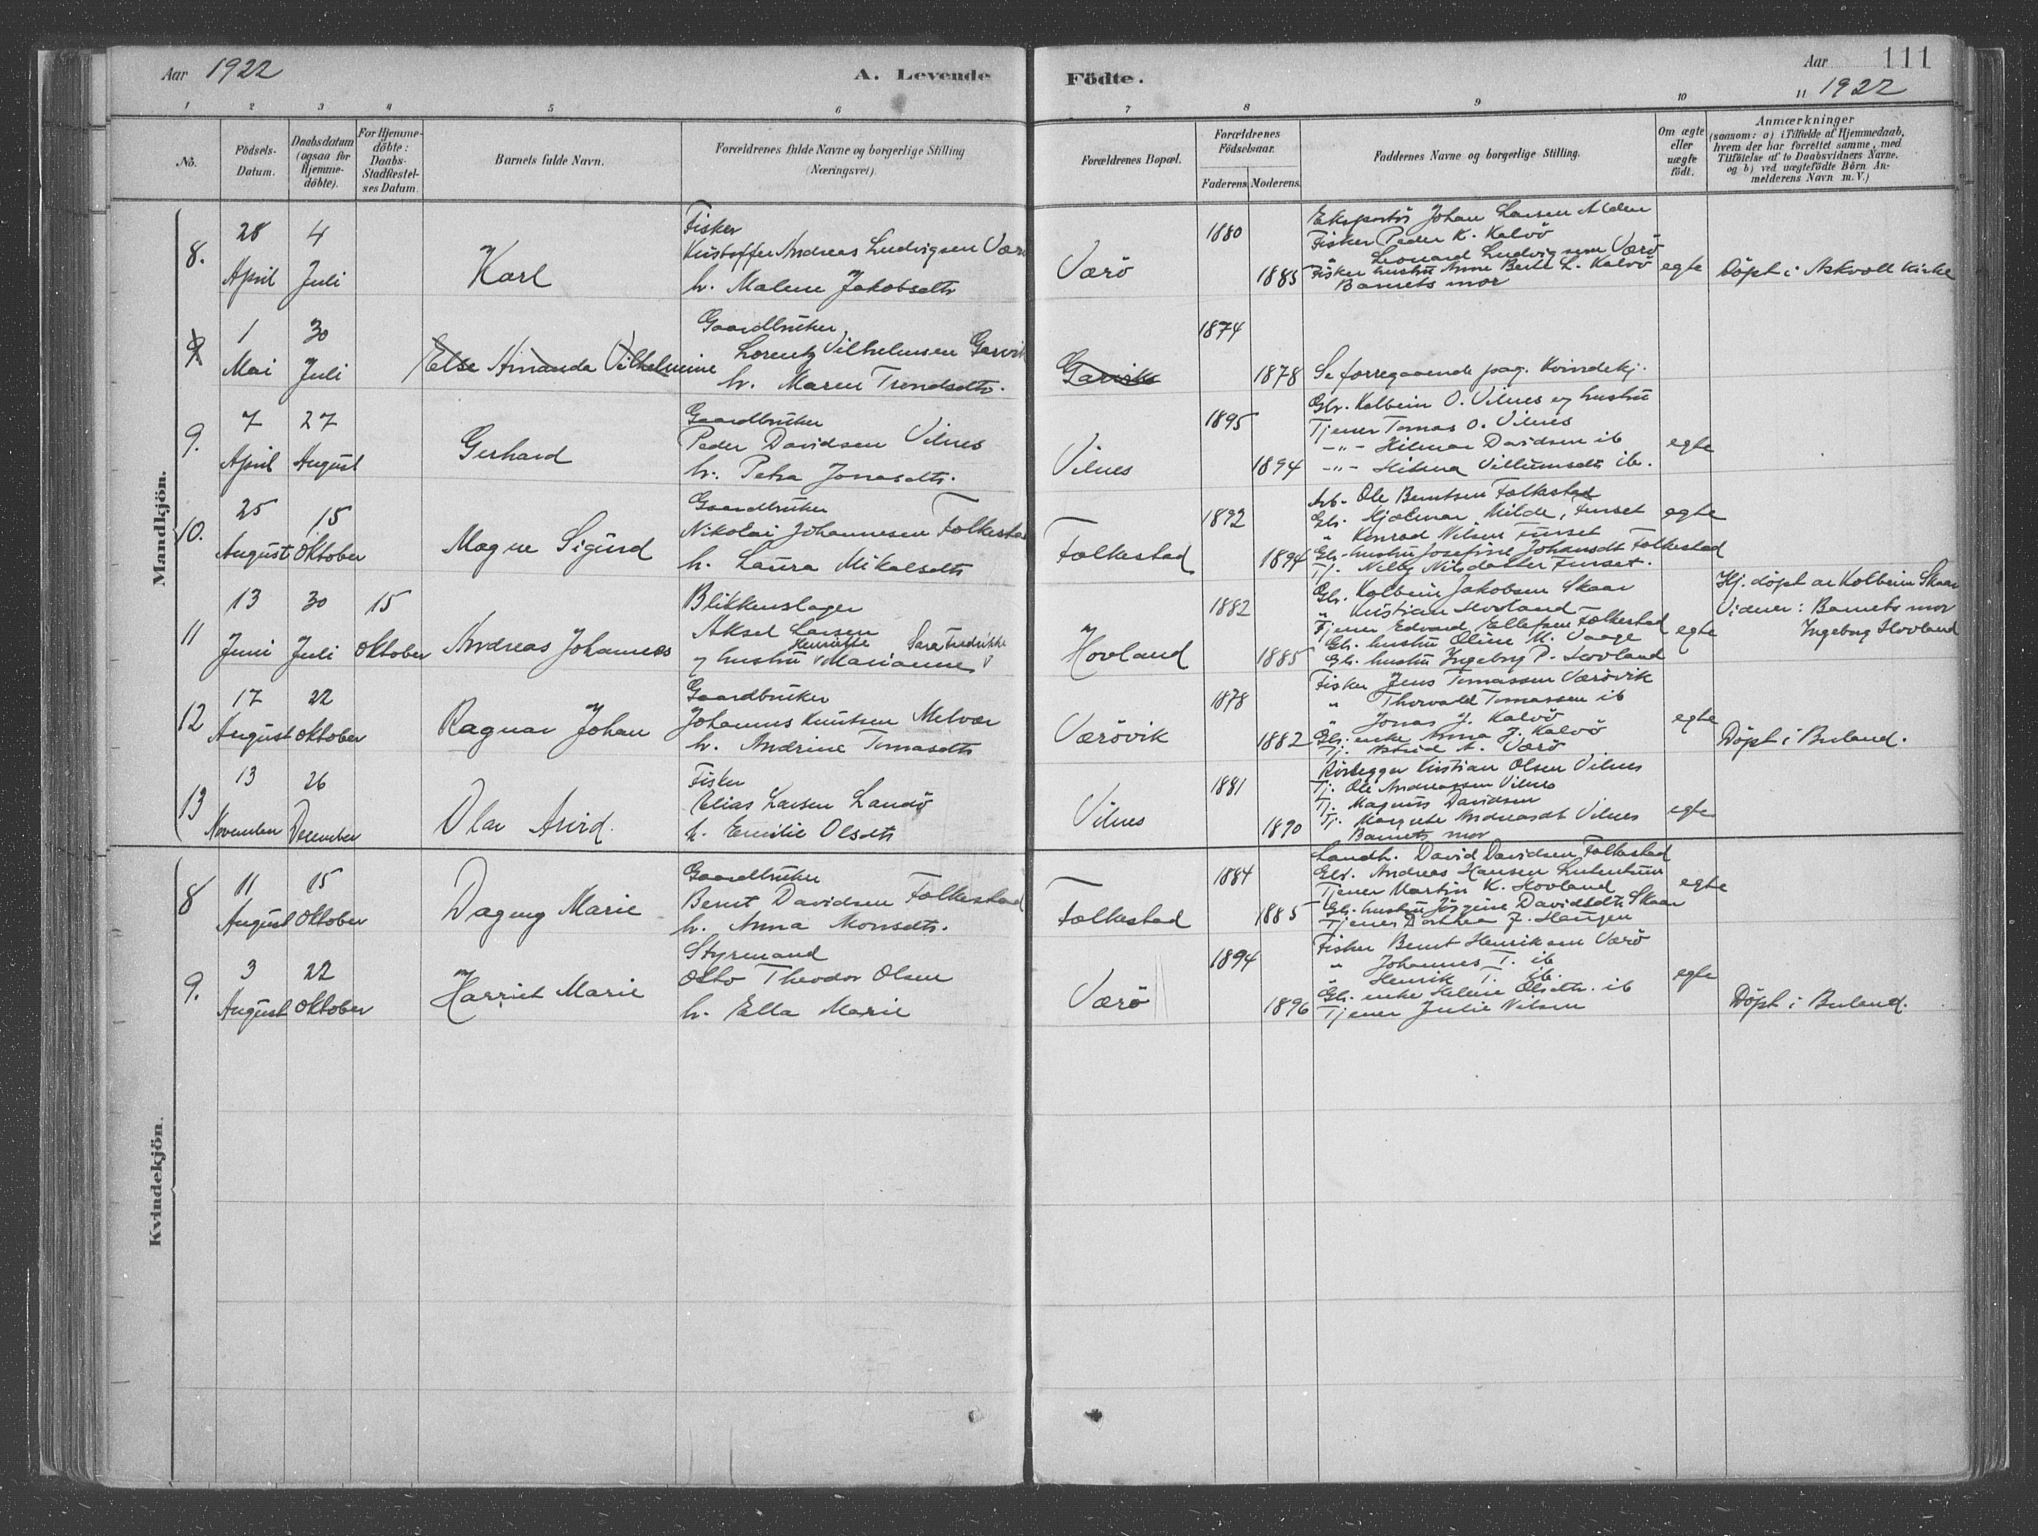 Aar 1922
A. Levende
Födte.
Aar 111
1922
1 2 3 4 5 6 7 8 9 10 11
Nô.
Födsels-Datum.
Daabsdatum (ogsaa for Hjemme-döbte).
For Hjemme-döbte: Daabs-Stadfæstel-ses Datum.
Barnets fulde Navn.
Forældrenes fulde Navne og borgerlige Stilling (Næringsvei).
Forældrenes Bopæl.
Forældrenes Födselsaar.
Faderens. Moderens.
Faddernes Navne og borgerlige Stilling.
Om ægte eller uægte födt.
Anmærkninger
(saasom: a) i Tilfælde af Hjemmedaab,
hvem der har forrettet samme, med
Tilföielse af to Daabsvidners Navne.
og b) ved uægtefödte Börn An-
melderens Navn m. V.)
Mandkjön.
8.
28 April
4 Juli
Karl
Fisker
Kristoffer Andreas Ludvigsen Værö
h. Malene Jakobsdtr
Værö
1880
1885
Eksportör Johan Larsen Alden
Fisker Peder K. Kalvö
" Leonard Ludvigsen Værö
Fisker hustru Anne Berte L. Kalvö
Barnets mor
egte
Döpt i Askvoll Kirke
1 Mai
30 Juli
Else Amanda Vilhelmine
Gaardbruker
Lorentz Vilhelmsen Garvik
h. Maren Trondsdtr.
Garvik
1874
1878
Se foregaaende pag. Kvindekj.
9.
7 April
27 August
Gerhard
Gaardbruker
Peder Davidsen Vilnes
h. Petra Jonasdtr.
Vilnes
1895
1894
Gbr. Kolbein O. Vilnes og hustru
Tjener Tomas O. Vilnes
-"- Hilmar Davidsen ib
-"- Hilma Villumsdtr ib.
egte
10.
25 August
15 Oktober
Magne Sigurd
Gaardbruker
Nikolai Johannesen Folkestad
h. Laura Mikalsdtr
Folkestad
1892
1894
Arb. Ole Berntsen Folkestad
Gbr. Hjalmar Milde, Furset
" Konrad Nilsen Furset
Gbr. hustru Josefine Johansdt Folkestad
Tj. Nelly Nilsdatter Furset.
egte
11
13 Juni
30 Juli
15 Oktober
Andreas Johannes
Blikkenslager
Aksel Larsen
Henriette Sara Fredrikke
og hustru Marianne
Hovland
1882
1885
Gbr. Kolbein Jakobsen Skaar
" Kristian Hovland
Tjener Edvard Ellefsen Folkestad
Gbr. hustru Oline M. Vaage
Gbr. hustru Ingeborg P. Hovland
egte
Hj. döpt av Kolbein Skaar
Vidner: Barnets mor
Ingeborg Hovland
12
17 August
22 Oktober
Ragnar Johan
Gaardbruker
Johannes Knutsen Melvær
h. Andrine Tomasdtr
Værövik
1878
1882
Fisker Jens Tomassen Værövik
" Thorvald Tomassen ib
" Jonas J. Kalvö
Gbr. enke Anna J. Kalvö
Tj. Astrid A. Værö
egte
Döpt i Buland.
13
13 November
26 December
Olav Arvid.
Fisker
Elias Larsen Landö
h. Emilie Olsdtr
Vilnes
1881
1890
Rörlegger Kristian Olsen Vilnes
Tj. Ole Andreassen Vilnes
Tj. Magnus Davidsen
Tj. Margrete Andreasdt Vilnes
Barnets mor
egte
Kvindekjön.
8
11 August
15 Oktober
Dagny Marie
Gaardbruker
Bernt Davidsen Folkestad
h. Anna Monsdtr.
Folkestad
1884
1885
Landh. David Davidsen Folkestad
Gbr. Andreas Hansen
Tjener Martin K. Hovland
Gbr. hustru Jörgine Davidsdtr Skaar
Tjener Dorthea J. Haugen
egte
9.
3 August
22 Oktober
Harriet Marie
Styrmand
Otto Theodor Olsen
h. Ella Marie
Værö
1894
1896
Fisker Bernt Henriksen Værö
" Johannes T. ib
" Henrik T. ib.
Gbr. enke Helene Olsdtr. ib
Tjener Julie Nilsen
egte
Döpt i Buland.